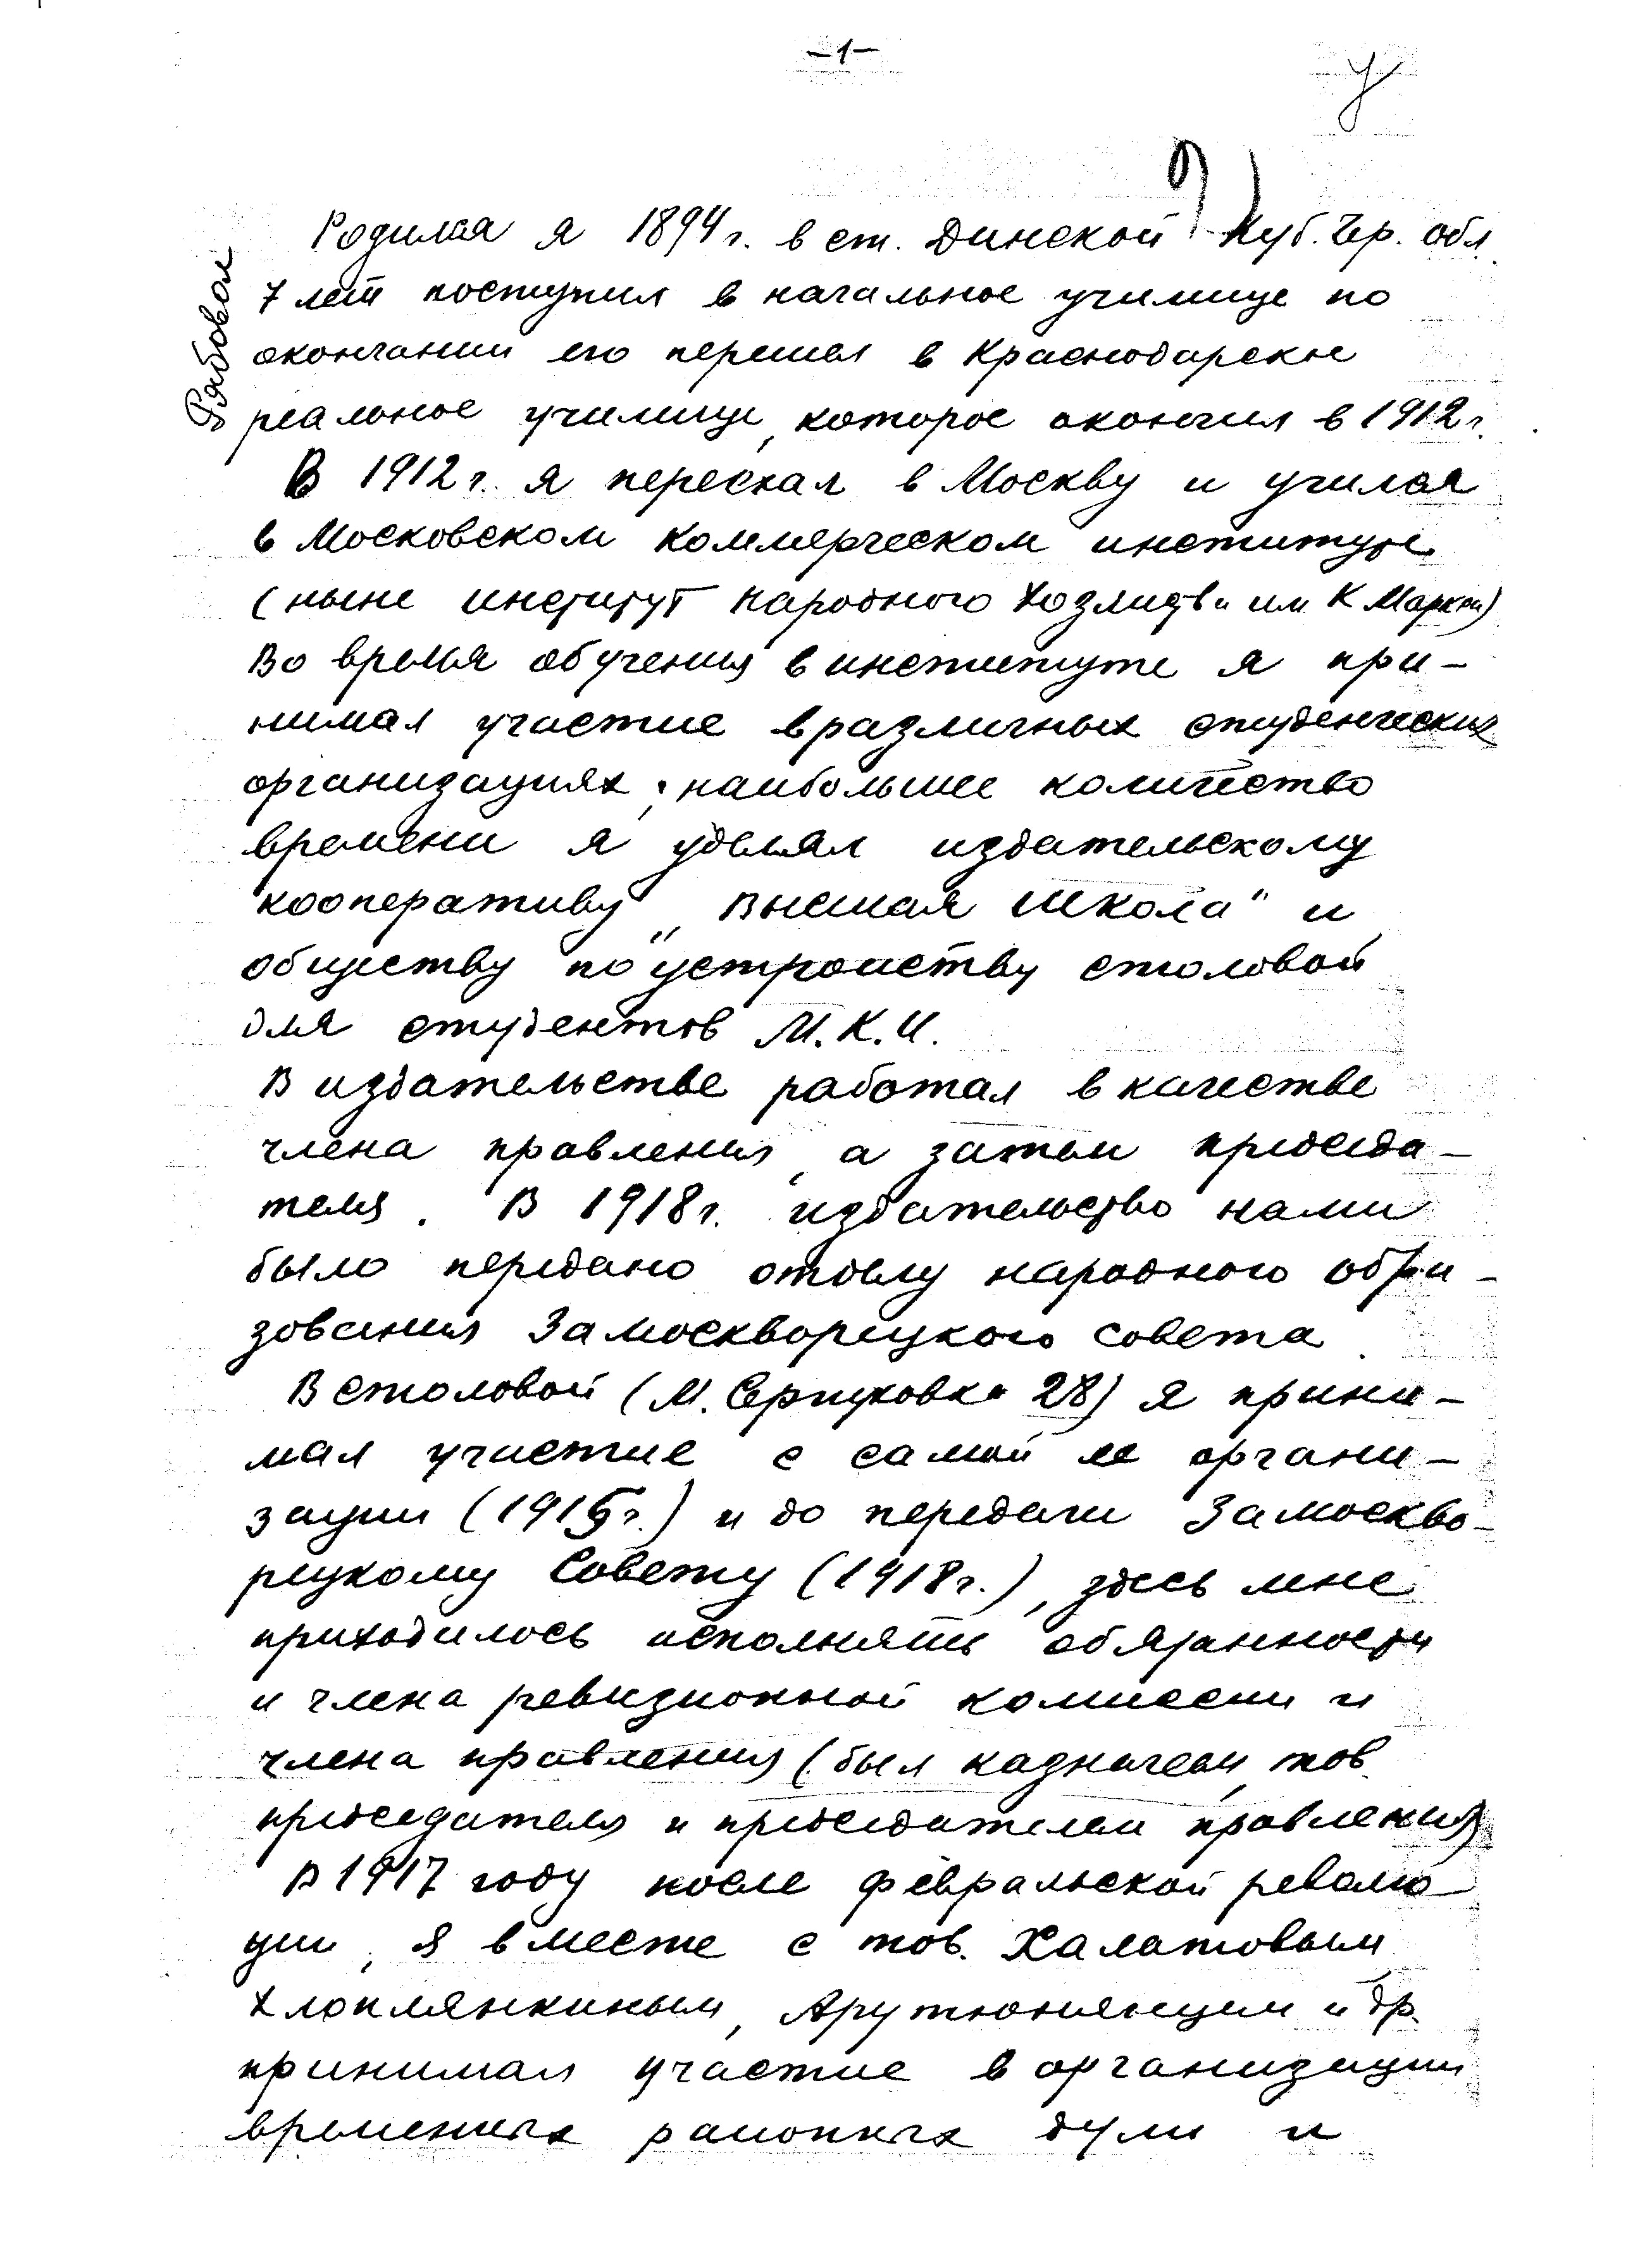 -1-
Рябовол
Родился я 1894 г. в ст. Динской Куб. Чер. обл.
7 лет поступил в начальное училище по
окончании его перешел в Краснодарское
реальное училище, которое окончил в 1912 г.
В 1912 г. я переехал в Москву и учился
в Московском коммерческом институте
(ныне институт народного хозяйства им К Маркса)
Во время обучения в институте я при-
нимал участие в различных студенческих
организациях; наибольшее количество
времени я уделял издательскому
кооперативу „Высшая школа" и
обществу по устройству столовой
для студентов М.К.И.
В издательстве работал в качестве
члена правления, а затем председа-
теля. В 1918 г. издательство нами
было передано отделу народного обра-
зования Замоскворецкого совета.
В столовой (М. Серпуховка 28) я прини-
мал участие с самой ее органи-
зации (1915 г.) и до передачи Замоскво-
рецкому Совету (1918 г.), здесь мне
приходилось исполнять обязанности
и члена ревизионной комиссии и
члена правления (был казначеем, тов.
председателя и председателем правления)
В 1917 году после февральской револю-
ции, я вместе с тов. Халатовым
Хлоплянкиным, Арутюнянцем и др.
принимал участие в организации
временных районных дум и